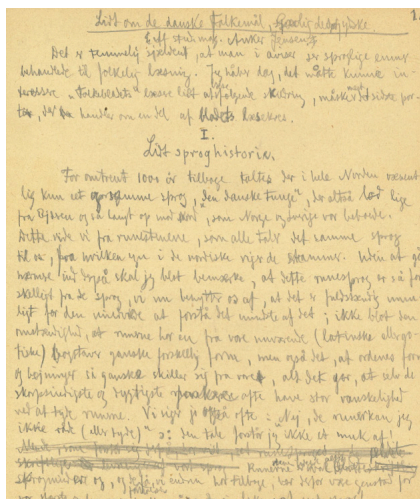 1.
Lidt om de danske Folkemål, særlig de jyske.
Af stud. mag. Anker Jensen
Det er temmelig sjældent, at man i aviser ser sproglige emner
behandlede til folkelig læsning. Jeg håber dog, det måtte kunne in-
teressere "Folkebladets" læsere lidt at følge skildring, måske det sidste por-
der handler om en del af bladets læsekres.
I.
Lidt sproghistorie.
For omtrent 1000 år tilbage taltes der i hele Norden væsent
lig kun et og samme sprog, "den danske tunge", der altså lød lige
fra Ejderen og så langt op mod nord, som Norge og Sverige var beboede.
Dette vide vi fra runestenene, som alle tale det samme sprog
til os, fra hvilken egn i de nordiske riger de stamme. Uden at gå
nærmere ind herpå skal jeg blot bemærke, at dette runesprog er så for
skelligt fra det sprog, vi nu benytter os af, at det er fuldstændig umu
ligt for den uindviede at forstå det mindste af det; ikke blot den
omstændighed, at runerne har en fra vore nuværende (latinske eller go-
tiske) bogstaver ganske forskellig form, men også det, at ordenes form
og bøjninger så ganske skiller sig fra vore, alt det gør, at selv de
skarpsindigste og dygtigste ofte have stor vanskelighed
ved at tyde runerne. Vi siger jo også ofte: "Nej, de runer kan jeg
ikke råde (eller tyde)" ɔ: den tale forstår jeg ikke et muk af!